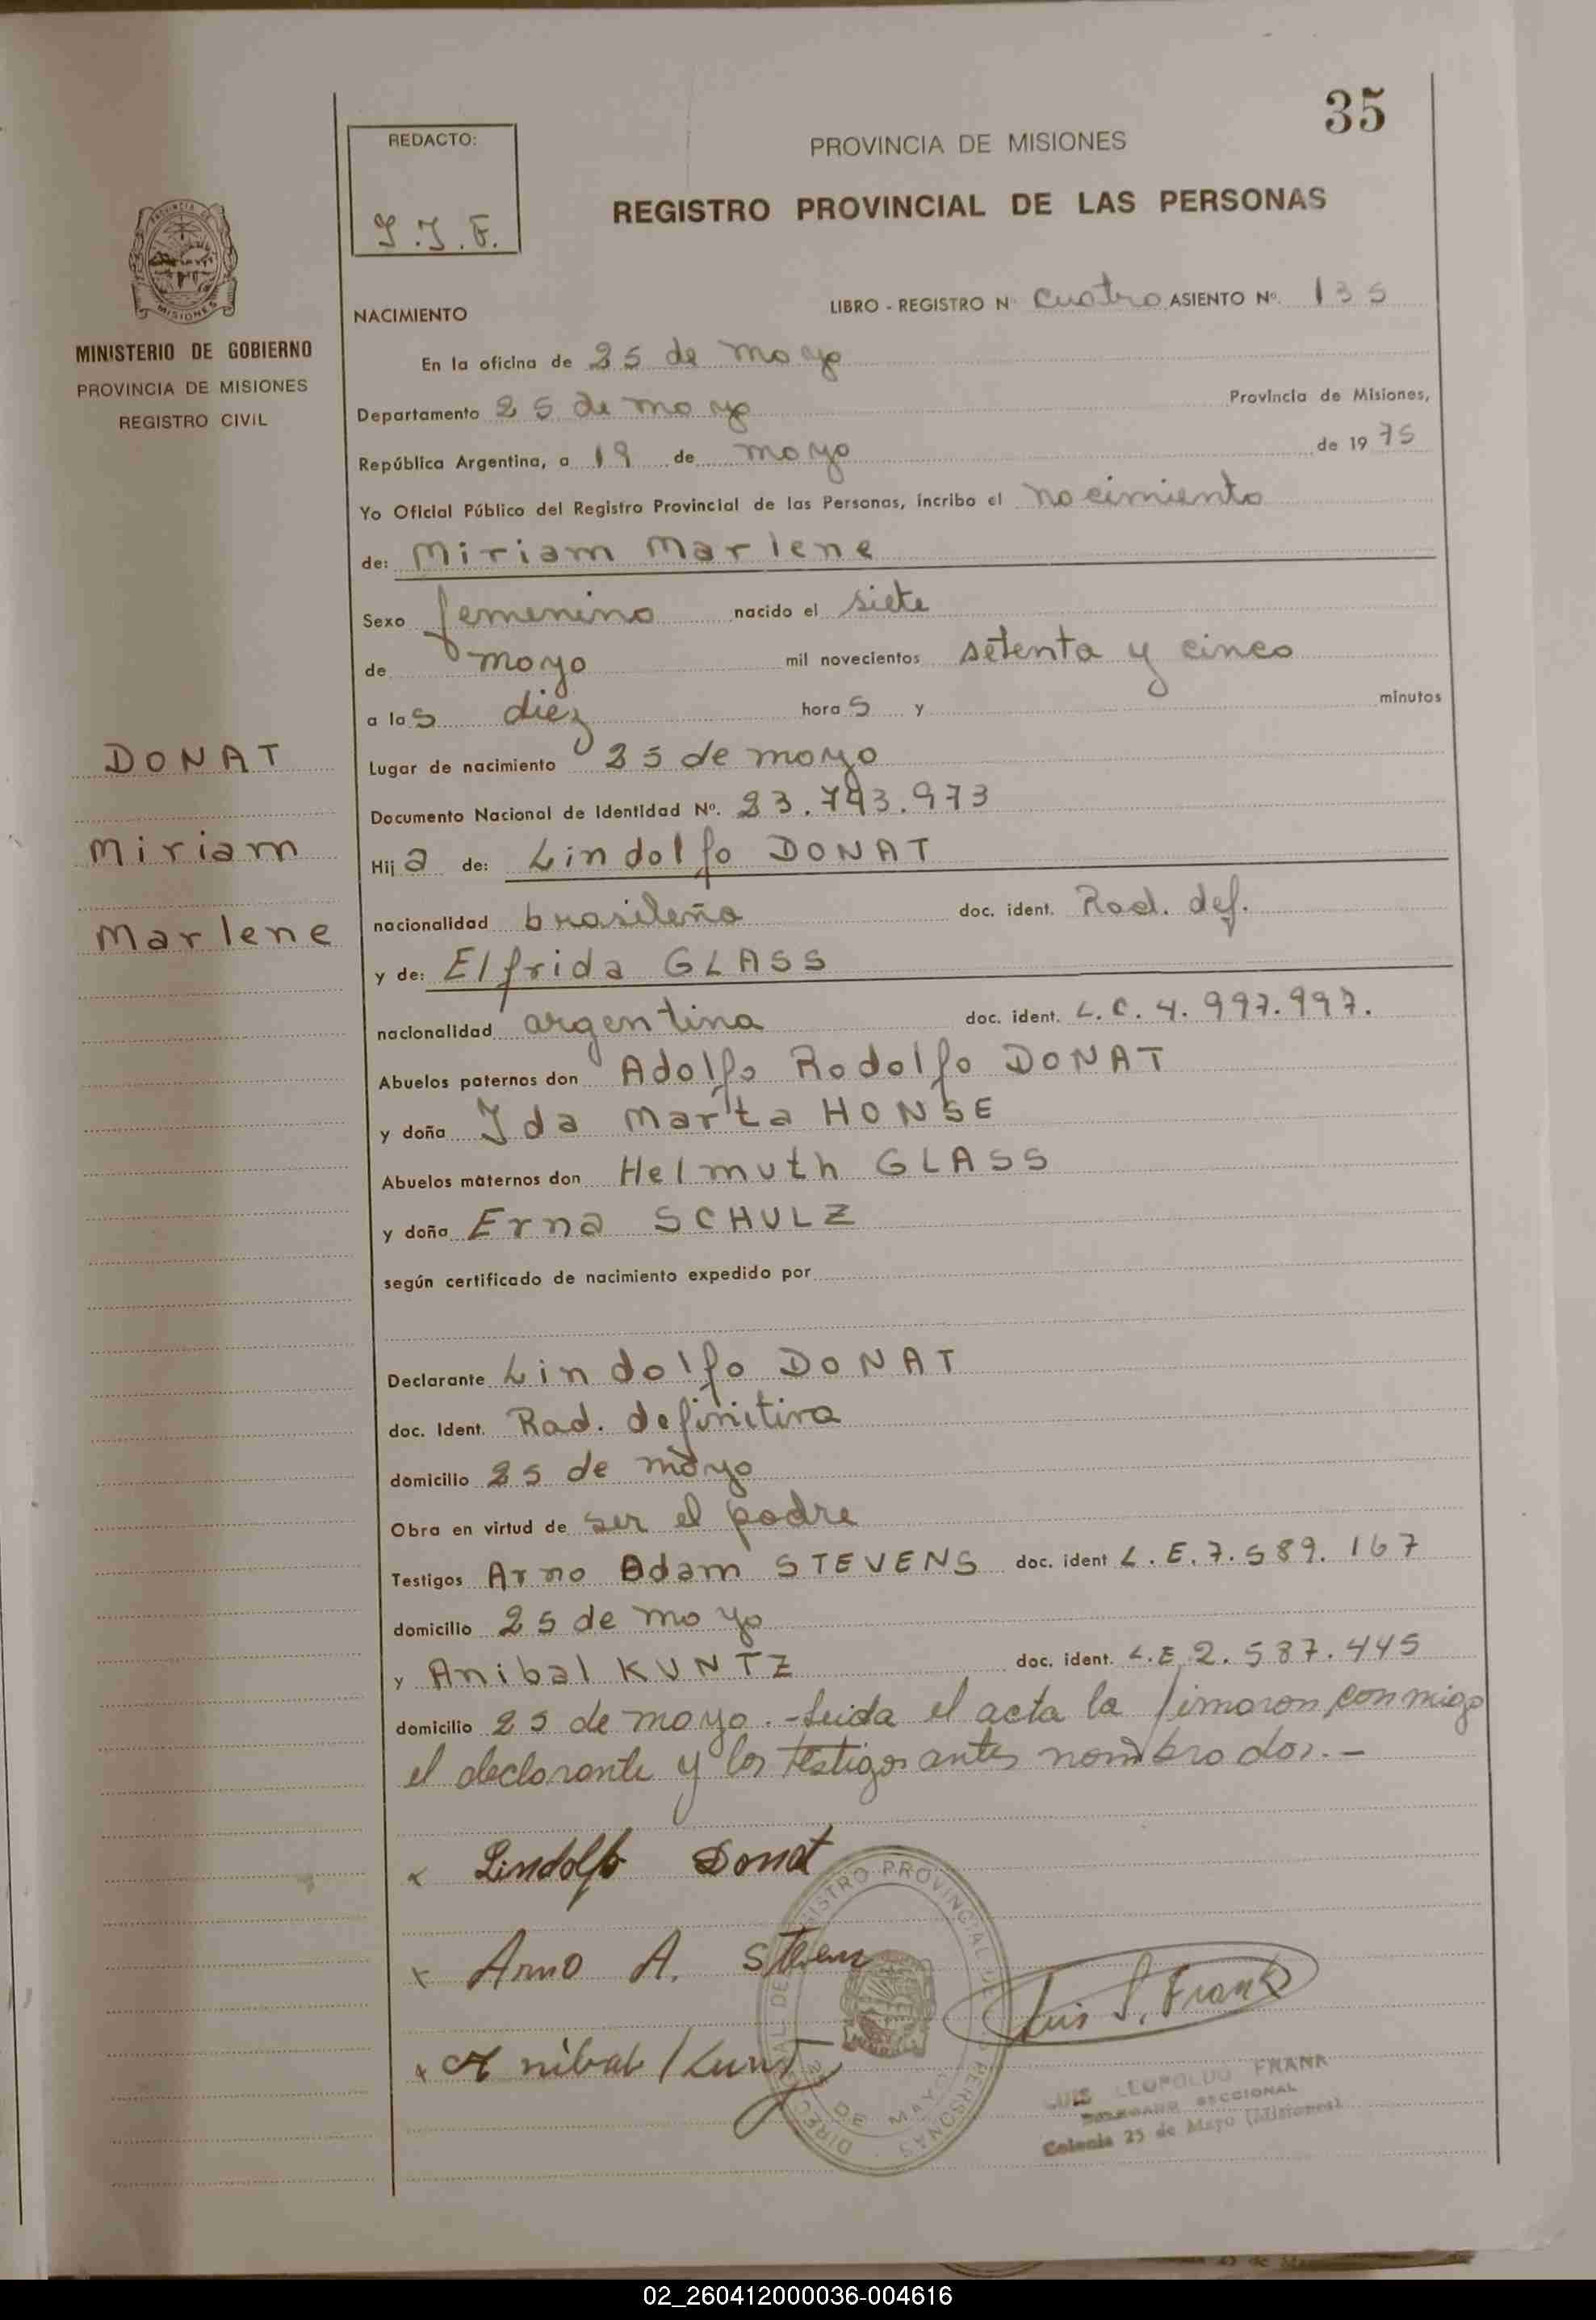 35
REDACTO:
PROVINCIA DE MISIONES
REGISTRO PROVINCIAL DE LAS PERSONAS
MISIONES
LIBRO - REGISTRO Nº cuatro ASIENTO Nº. 135
NACIMIENTO
MINISTERIO DE GOBIERNO
PROVINCIA DE MISIONES
REGISTRO CIVIL
En la oficina de 25 de mayo
Departamento 25 de mayo Provincia de Misiones,
República Argentina, a 19 de mayo de 1975
Yo Oficial Público del Registro Provincial de las Personas, incribo el nacimiento
de: Miriam Marlene
Sexo femenino nacido el siete
de mayo mil novecientos setenta y cinco
a las diez horas y minutos
DONAT
Miriam
Marlene
Lugar de nacimiento 25 de mayo
Documento Nacional de Identidad Nº. 23.743.973
Hija de: Lindolfo DONAT
nacionalidad brasileña doc. ident. Rad. def.
y de: Elfrida GLASS
nacionalidad argentina doc. ident. L.C. 4.997.997.
Abuelos paternos don Adolfo Rodolfo DONAT
y doña Ida Marta HONSE
Abuelos maternos don Helmuth GLASS
y doña Erna SCHULZ
según certificado de nacimiento expedido por
Declarante Lindolfo DONAT
doc. Ident. Rad. definitiva
domicilio 25 de mayo
Obra en virtud de ser el padre
Testigos Arno Adam STEVENS doc. ident L.E. 7.589.167
domicilio 25 de mayo
y Anibal KUNTZ doc. ident. L.E. 2.587.445
domicilio 25 de mayo.- Leida el acta la firmaron conmigo
el declarante y los testigos antes nombrados.-
x Lindolfo Donat
x Arno A. Steven
Luis L. Frank
x Anibal Kuntz
DIRECC PROVINCIAL DE PERSONAS 25 DE MAYO
LUIS LEOPOLDO FRANK
SECCIONAL
Colonia 25 de Mayo (Misiones)
02_260412000036-004616